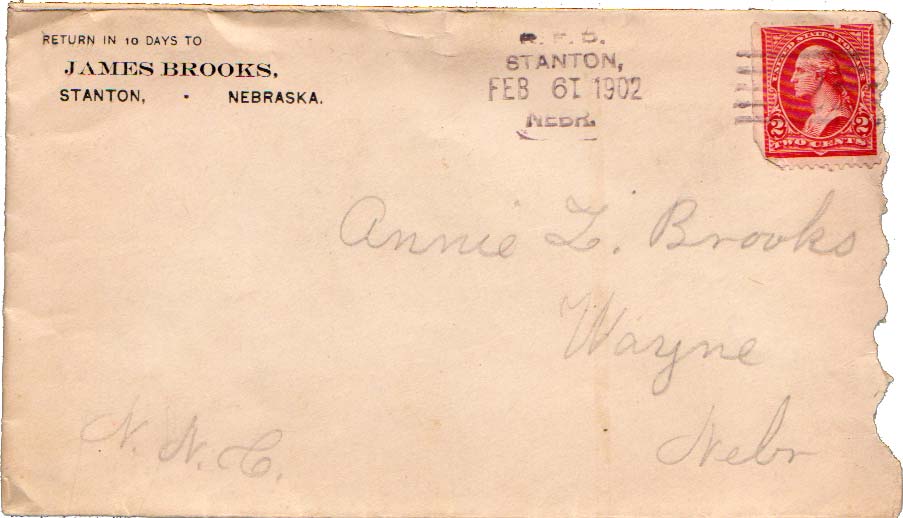 RETURN IN 10 DAYS TO
JAMES BROOKS,
STANTON, · NEBRASKA.
R. F. D.
STANTON,
FEB 6 1902
NEBR.
UNITED STATES POSTAGE
2 2
TWO CENTS
Annie L. Brooks
Wayne
Nebr
N. N. C.